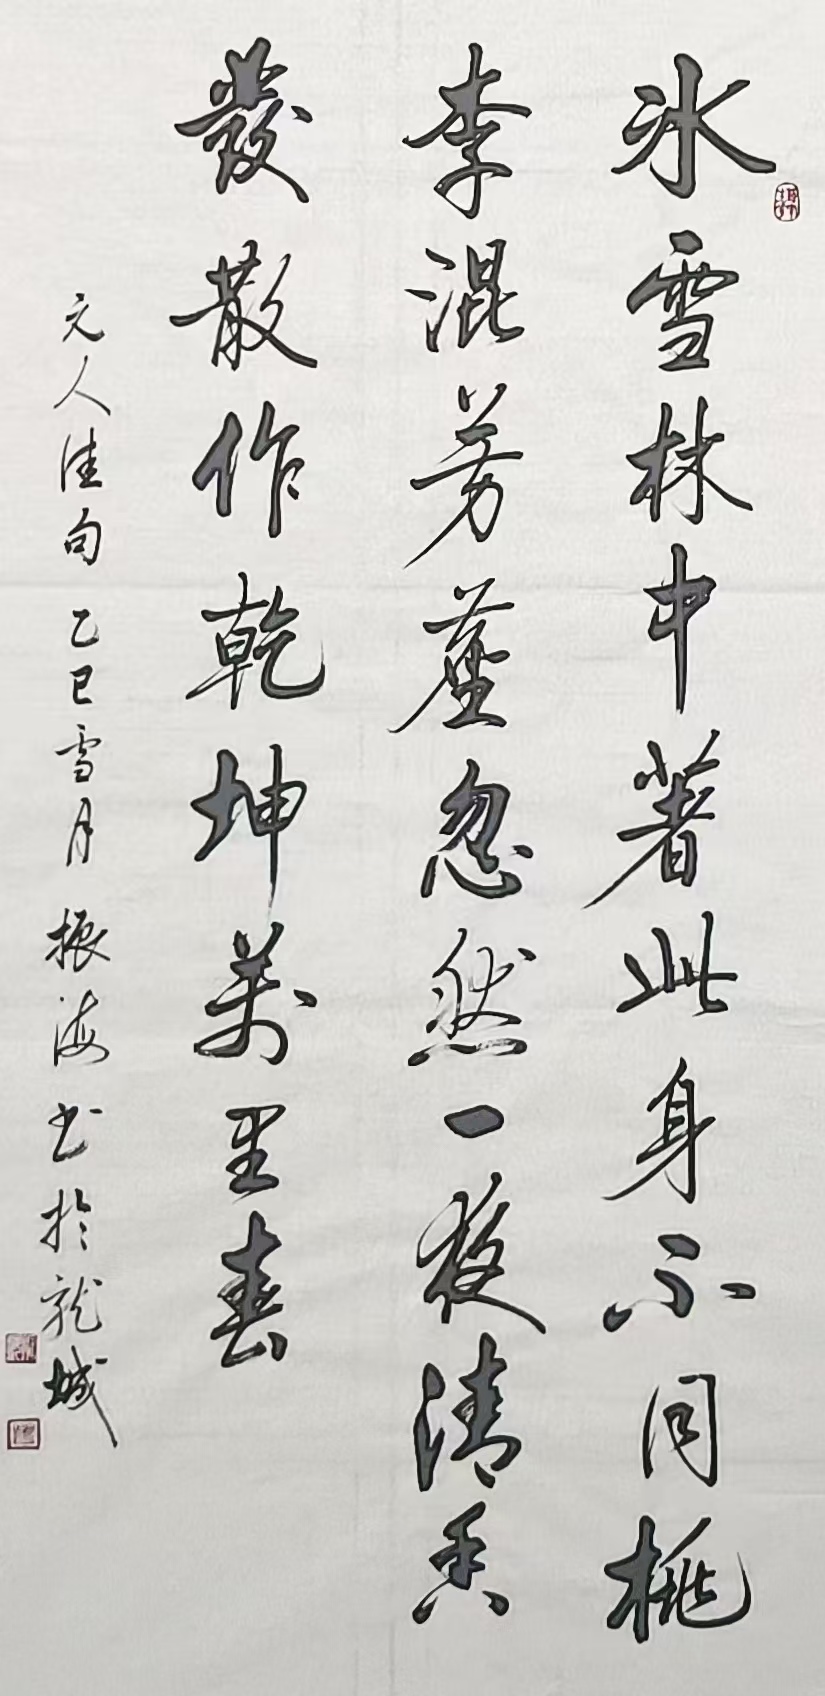 冰雪林中著此身不同桃
李混芳塵忽然一夜清香
發散作乾坤萬里春
元人佳句 乙巳雪月 振海书於龍城